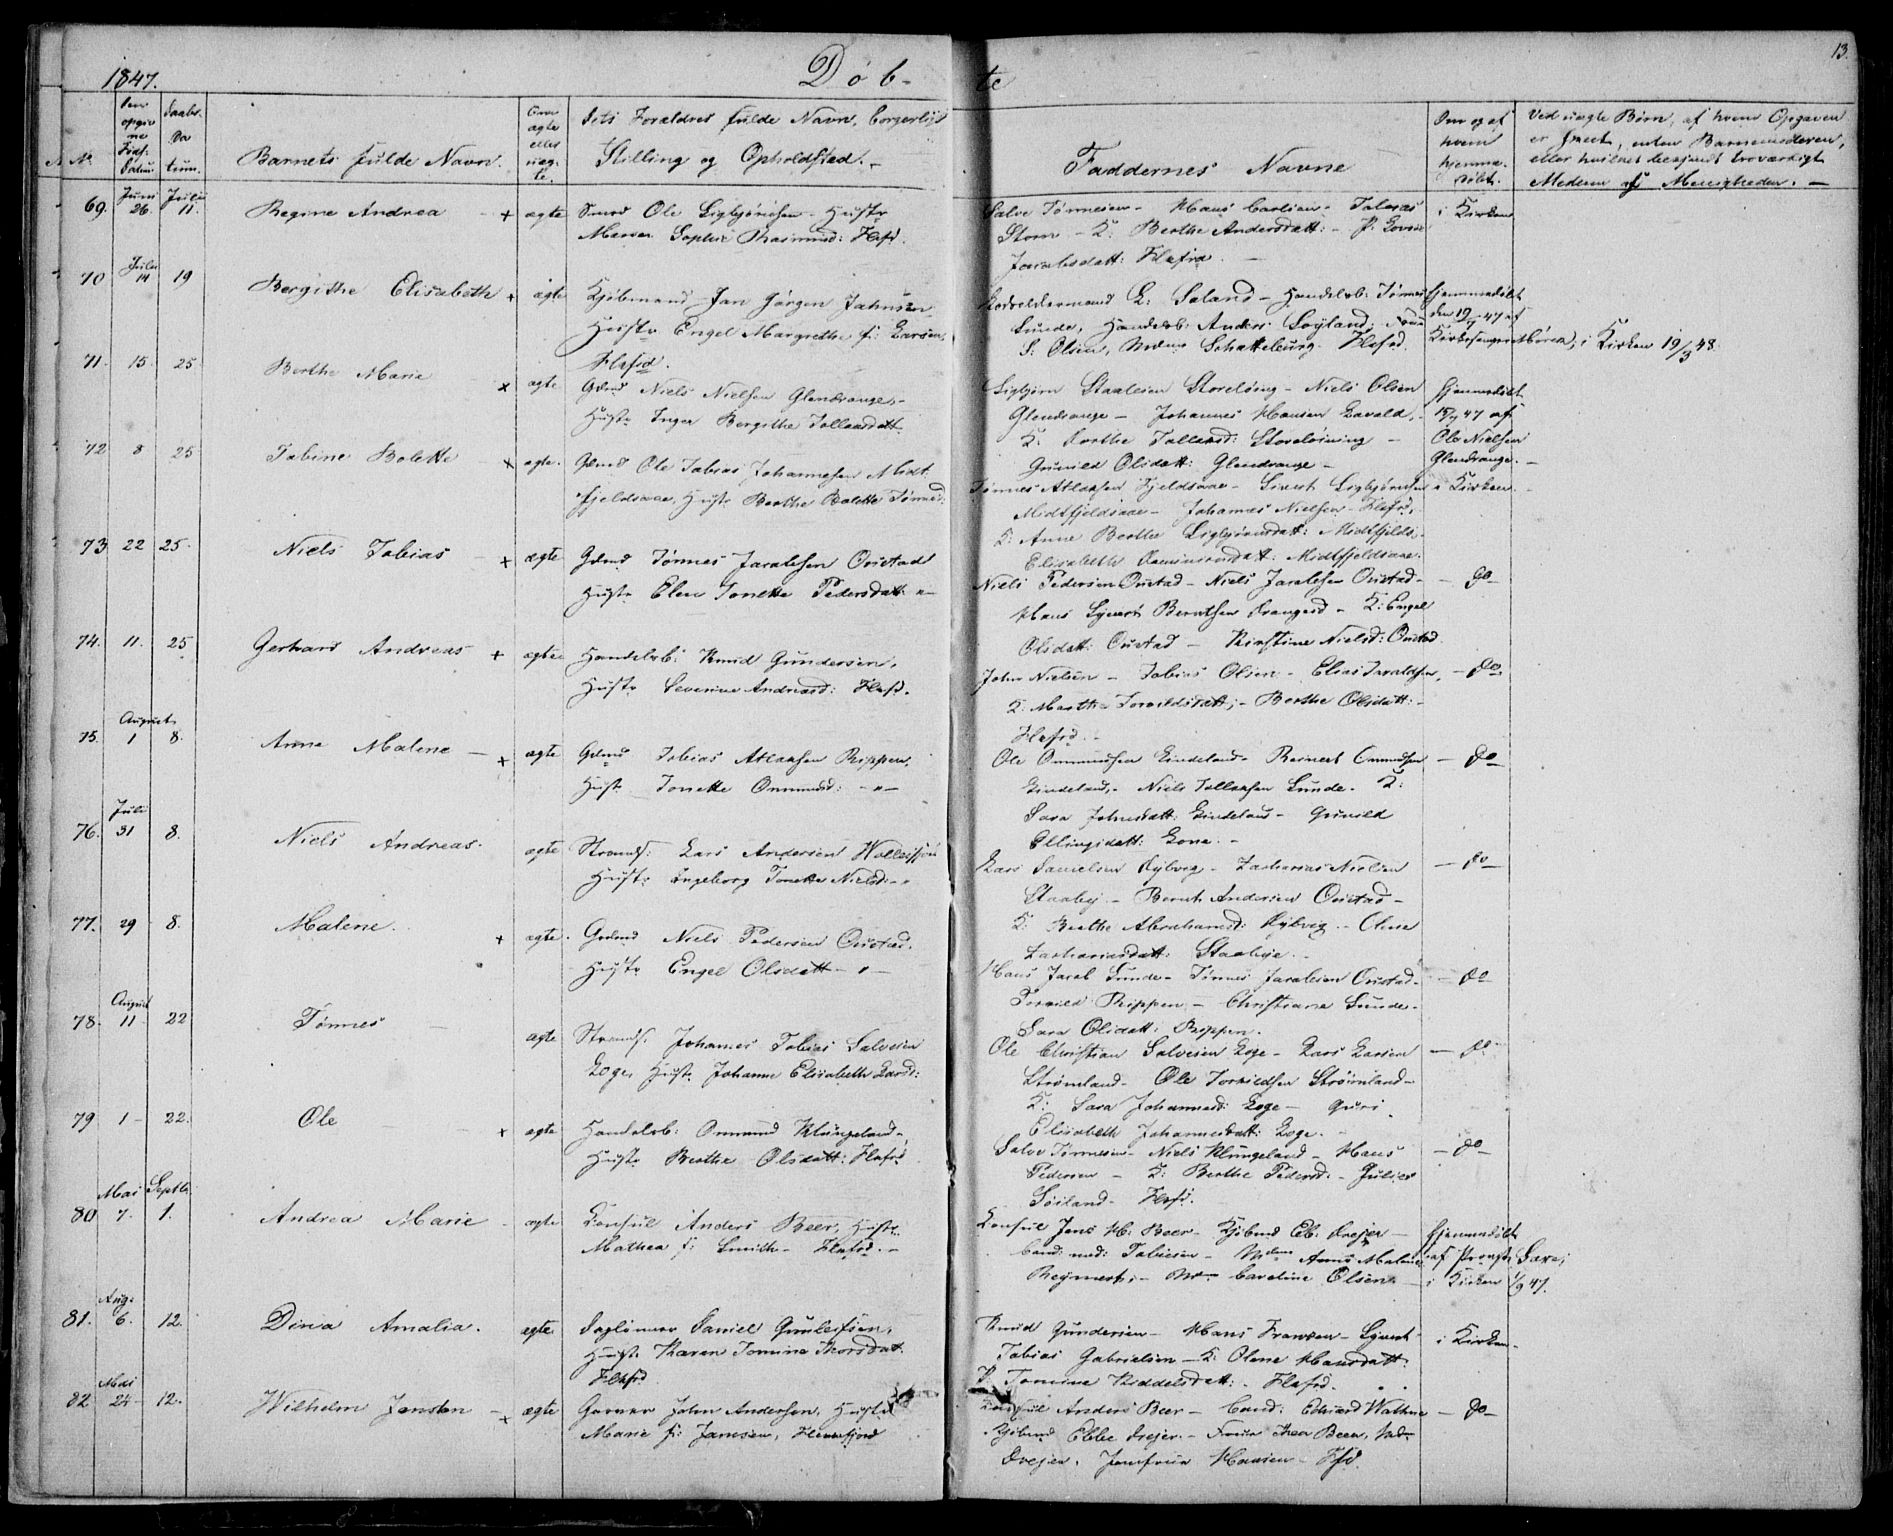 1847.
Døb-
te
13.
No.
Den opgivne Føds. Datum
Daabs-Datum.
Barnets fulde Navn.
Om ægte eller uægte.
Dets Forældres fulde Navn, borgerligt
Stilling og Opholdsted. -
Faddernes Navne
Om og af hvem hjemmedøbt.
Ved uægte Børn, af hvem Opgaven
er skeet, enten Barnemoderen,
eller hvilket bekjendt troværdigt
Medlem af Menigheden. -
69. Juni 26. Juli 11. Regine Andrea - + ægte
Smed Ole Sigbjørnsen - Hustr
Maren Sophie Rasmusd: Flfd.
Salve Tønnesen - Hans Carlsen - Tobias
Storm - K: Berthe Andersdatt: - P.
Jacobsdatt: Flefio. -
i Kirken
70 Juli 14 19 Bergithe Elisabeth + ægte
Kjøbmand Jan Jørgen Jahnsen,
Hustr Engel Margrethe f: Larsen,
Flefd.
L: Søland - Handelsb: Tønnes
Sunde, Handelsb: Anders Søyland,
S: Olsen, Mdme Schatteburg. Flefd.
hjemmedøbt
den 19/7 47 af
Kirkesanger Mören, i Kirken 19/3 48.
71. 15. 25. Berthe Marie + ægte
Gdmd Niels Nielsen Glendrange, -
Hustr Inger Bergithe Tollaksdatt.
Sigbjørn Staalesen Storeløing - Niels Olsen
Glendrange - Johannes Hansen Lavold, -
K: Berthe Tollaksd: Storeløining -
Gunild Olsdatt: Glendrange -
hjemmedøbt
15/7 47 af
Ole Nielsen
Glendrange. -
72 8 25 Tabine Bolette + ægte.
Gdmd Ole Tobias Johannesen Midt-
fjeldsaae, Hustr Berthe Bolette Tønnesd:
Tønnes Atlaksen Fjeldsaae - Sivert Sigbjørnsen
Midtfjeldsaae - Johannes Nielsen - Flefd.
K: Anne Berthe Sigbjørnsdatt: Midtfjelds.
Elisabeth Rasmusdatt: Midtfjeldsaae.
i Kirken. -
73 22 25. Niels Tobias - + ægte
Gdmd Tønnes Jacobsen Oustad
Hustr Elen Tonette Pedersdatt: "-
Niels Pedersen Oustad - Niels Jacobsen Oustad -
Hans Syvert Berntsen Drangsd - K: Engel
Olsdatt: Oustad - Kirstine Nielsd: Oustad
- do -
74. 11. 25 Gerhard Andreas + ægte
Handelsb: Knud Gundersen,
Hustr Severine Andreasd: Flefd.
John Nielsen - Tobias Olsen - Elias Jacobsen,
K: Marthe Torkildsdatt; - Berthe Olsdatt: -
Flefd. -
- do -
75. August 1 8. Anne Malene - + ægte
Gdmd Tobias Atlaksen Rippen,
Hustr Tonette Ommundsd: - " -
Ole Ommundsen Lindeland - Reinert Ommundsen
Lindeland, - Niels Tollaksen Sunde. K:
Sara Johnsdatt: Lindeland - Gunild
Ellingsdatt: Lone. -
- do -
76. Juli 31 8. Niels Andreas. ægte
Strands: Lars Andersen
Hustr Ingeborg Tonette Nielsd: - "
Lars Samelsen Rykvog - Zacharias Nielsen
Staaby - Bernt Andersen Oustad -
K: Berthe Abrahamsd: Rykvog - Olene
Zachariasdatt: Staabye. -
- do -
77. 29 8. Malene. + ægte.
Gdmd Niels Pedersen Oustad.
Hustr Engel Olsdatt - " -
Hans Jacob Sunde - Tønnes Jacobsen Oustad -
Torkild Rippen - Christiane Sunde -
Sara Olsdatt: Rippen.
- do -
78. August 11. 22 Tønnes - ægte
Strands: Johannes Tobias Salvesen
Loge, Hustr Johanne Elisabeth Larsd:
Ole Christian Salvesen Loge - Lars Larsen
Strømland - Ole Torkildsen Strømland -
K: Sara Johannesd: Loge - Guri
Elisabeth Johannesdatt: Loge. -
- do -
79 1 - 22. Ole - + ægte
Handelsb: Ommund Klungeland -
Hustr Berthe Olsdatt: Flefd
Salve Tønnesen - Niels Klungeland - Hans
Pedersen - K: Berthe Pedersd: - Julie
Søiland - Flefd.
- do -
80 Mai 7. Septbr 1. Andrea Marie - ægte
Consul Anders Beer, Hustr.
Mathea f: Smith - Flefd. -
Consul Jens H: Beer - Kjøbmd Eb: Drejer -
Cand: med: Tobiesen - Mdm Anne Malene
Reymert, - Mdm Caroline Olsen -
hjemmedøbt
af Provst Saxe;
i Kirken 1/9 47.
81. Aug: 6. 12. Dina Amalia. ægte
Dagløner Daniel Gunleifsen,
Hustr. Karen Tomine Thorsdatt.
Flefd.
Knud Gundersen - Hans Franzen - Syvert
Tobias Gabrielsen - K: Olene Hansdatt:
P. Tomine Kiddelsdatt: - Flefd.
i Kirken -
82 Mai 24 - 12. Wilhelm Jensten - + ægte
Garver John Andersen, Hustr
Marie f: Jansen, Flekkefjord
Consul Anders Beer - Cand: Edvard Wathne
Kjøbmd Ebbe Drejer - Frue Thea Beer, Md
Drejer. Jomfrue Hansen - Ffd.
- do -